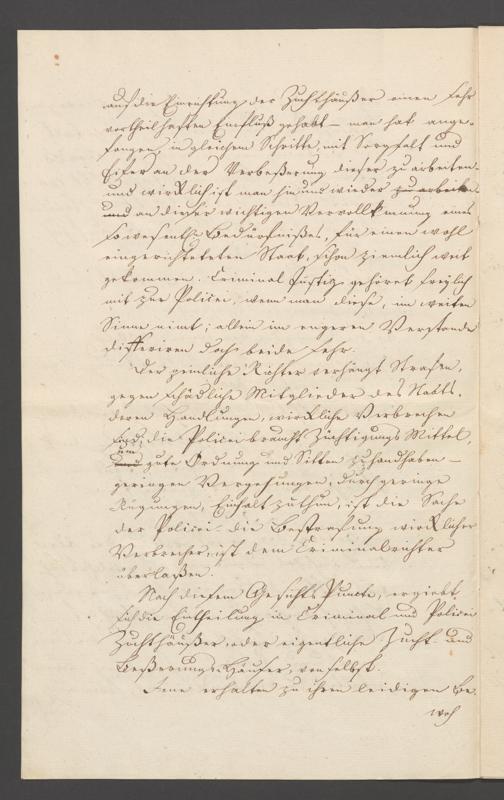 auf die Einrichtung der Zuchthäußer einen sehr
vortheilhaften Einfluß gehabt – man hat ange-
fangen in gleichem Schritte, mit Sorgfalt und
Eifer an der Verbeßerung dieser zu arbeiten
und wirklich ist man hin und wieder zu arbeiten
und an dieser wichtigen Vervollkmnung eines
so wesentl. Bedürfnißes, für einen wohl
eingerichteteten Staat, schon ziemlich weit
gekommen. Criminal Justiz gehöret freylich
mit zur Policei, wenn man diese, im weiten
Sinne nimt; allein im engeren Verstande
differiren doch beide sehr.
Der peinliche Richter verhängt Strafen,
gegen schädliche Mitglieder des Staats,
deren Handlungen, wirkliche Verbrechen
sind, die Policei braucht Züchtigungs Mittel,
um
und gute Ordnung und Sitten zu handhaben –
geringen Vergehungen, durch geringe
Rügungen, Einhalt zu thun, ist die Sache
der Policei – die Bestrafung wirklicher
Verbrecher, ist dem Criminalrichter
überlaßen.
Nach diesem Gesichts Puncte, ergiebt
sich die Eintheilung in Criminal und Policei
Zuchthäußer, oder eigentliche Zucht- und
Beßerungs Häuser, von selbst.
Jene erhalten zu ihren leidigen Be-
woh